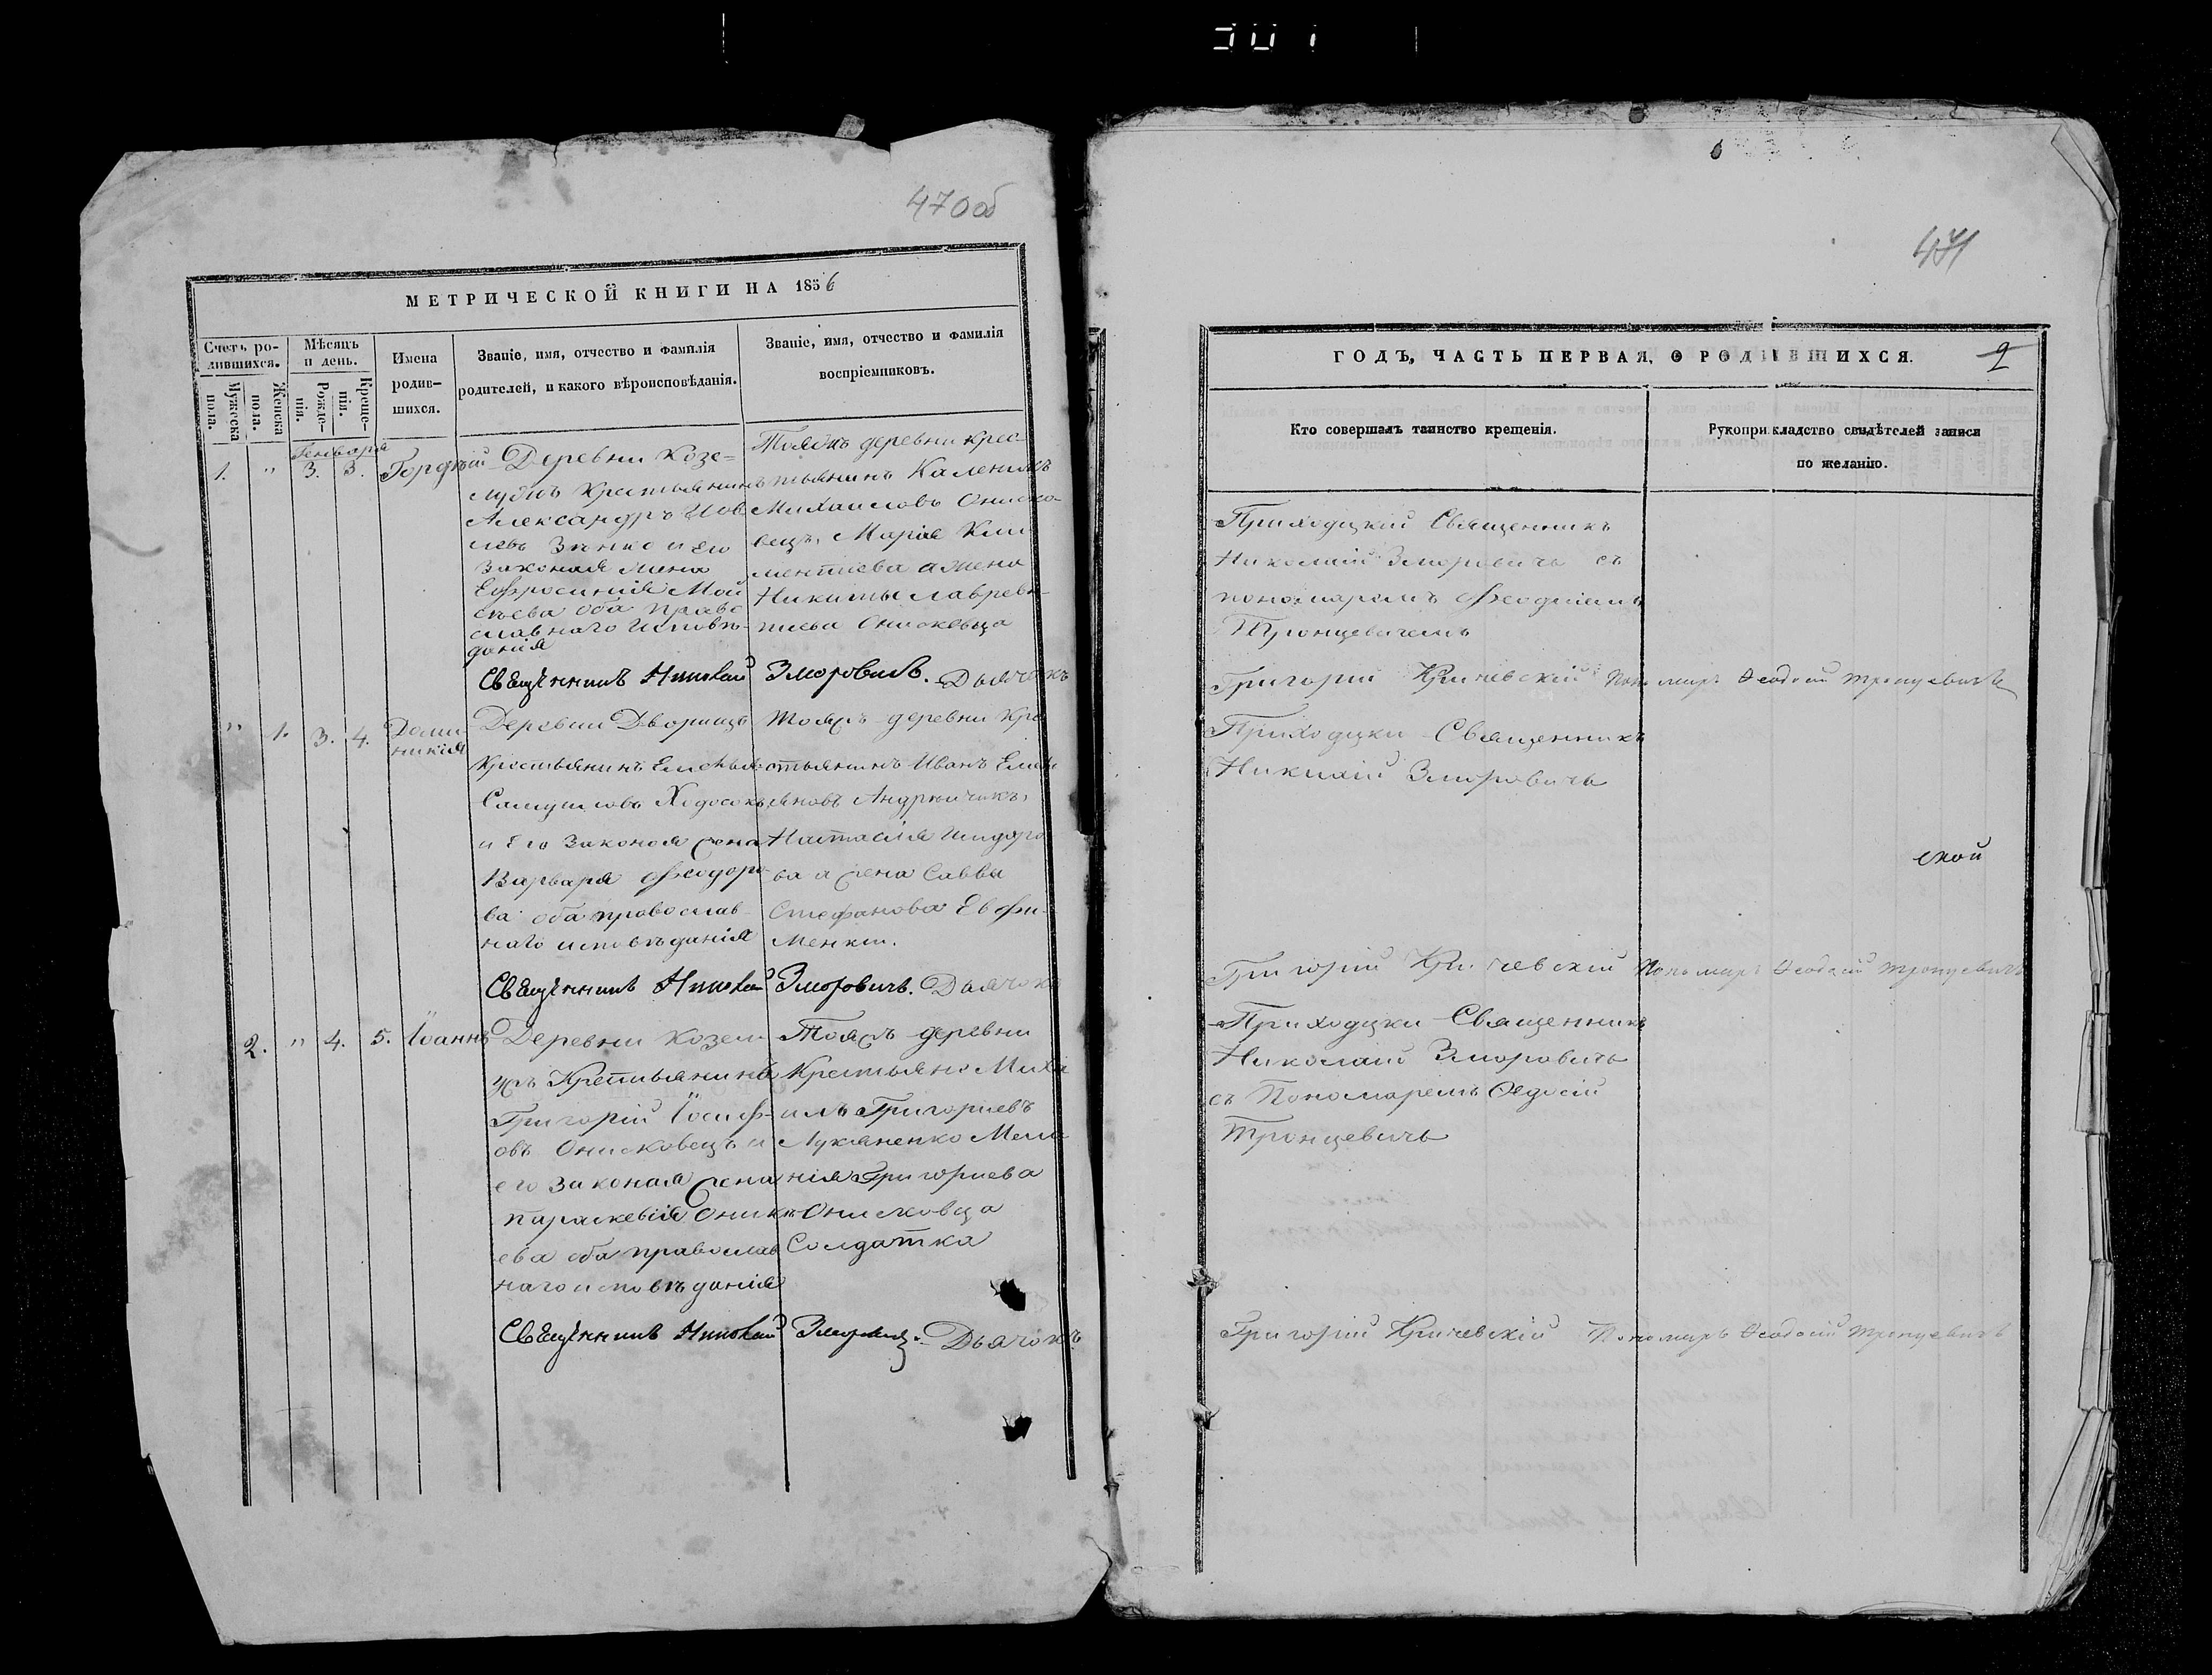 301
470об
МЕТРИЧЕСКОЙ КНИГИ НА 1856
Счетъ ро-
дившихся.
Мужеска
пола.
Женска
пола.
Мѣсяцъ
и день.
Рожде-
нія.
Креще-
нія.
Имена
родив-
шихся.
Званіе, имя, отчество и фамилія
родителей, и какого вѣроисповѣданія.
Званіе, имя, отчество и фамилія
воспріемниковъ.
Генворя
1. " 3. 3.
Гордѣй
Деревни Козе-
лужъ Крестьянинъ
Александръ Іов
левъ Зѣнко и его
Законая жена
Ефросинія Мои
сѣева оба право
славнаго исповѣ-
данія
Тояжъ деревни крес
тьянинъ Каленикъ
Михаиловъ Ониско-
вецъ. Марія Кли
ментіева а жена
Никиты Лаврен-
тіева Онисковца
Священникъ Николай Зморовичъ. Дьячокъ
" 1. 3. 4.
Доми
никія
Деревни Дворища
Крестьянинъ Емельян
Самуиловъ Ходосокъ
и Его Законоя жена
Варвара Феодоро
ва оба православ-
наго исповѣданія
Тояжъ деревни Кре
стьянинъ Иванъ Емел
ьяновъ Андрейчикъ,
Настасія Исидоро
ва а жена Саввы
Стефанова Евфи-
менки.
Священникъ Николай Зморовичъ. Дьячокъ
2. " 4. 5.
Іоаннъ
Деревни Козелу
жъ Крестьянинъ
Григорій Іосиф-
овъ Онисковецъ и
его законая жена
Параскевія Оникѣ
ева оба православ
наго исповѣданія
Тояжъ деревни
Крестьяно Миха
илъ Григориевъ
Лукяненко Мела
нія Григориева
Онисковца
Солдатка
Священникъ Николай Зморовичъ. Дьячокъ
471
ГОДЪ, ЧАСТЬ ПЕРВАЯ, О РОДИВШИХСЯ.
2
Кто совершалъ таинство крещенія.
Рукоприкладство свидѣтелей записи
по желанію.
Приходцкій Священникъ
Николай Зморовичъ съ
пономаремъ Феодосіемъ
Тронцевичемъ
Григорій Кричевскій Пономаръ Ѳеодосій Тронцевичъ
Приходцки Священникъ
Николай Зморовичъ
ской
Григорій Кричевскій Пономаръ Ѳеодосій Тронцевичъ
Приходцки Священникъ
Николай Зморовичъ
съ Пономаремъ Ѳедосій
Тронцевичъ
Григорій Кричевскій Пономаръ Ѳеодосій Тронцевичъ